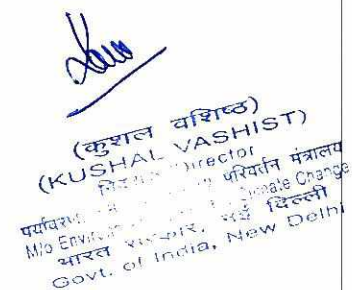 (कुशल वशिष्ठ)
(KUSHAL VASHIST)
Director
परिवर्तन मंत्रालय
M/o Climate Change
भारत सरकार, नई दिल्ली
Govt. of India, New Delhi